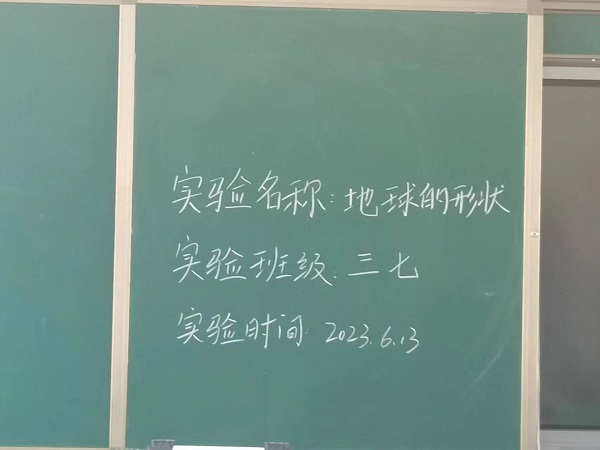 实验名称:地球的形状
实验班级:三七
实验时间:2023.6.13